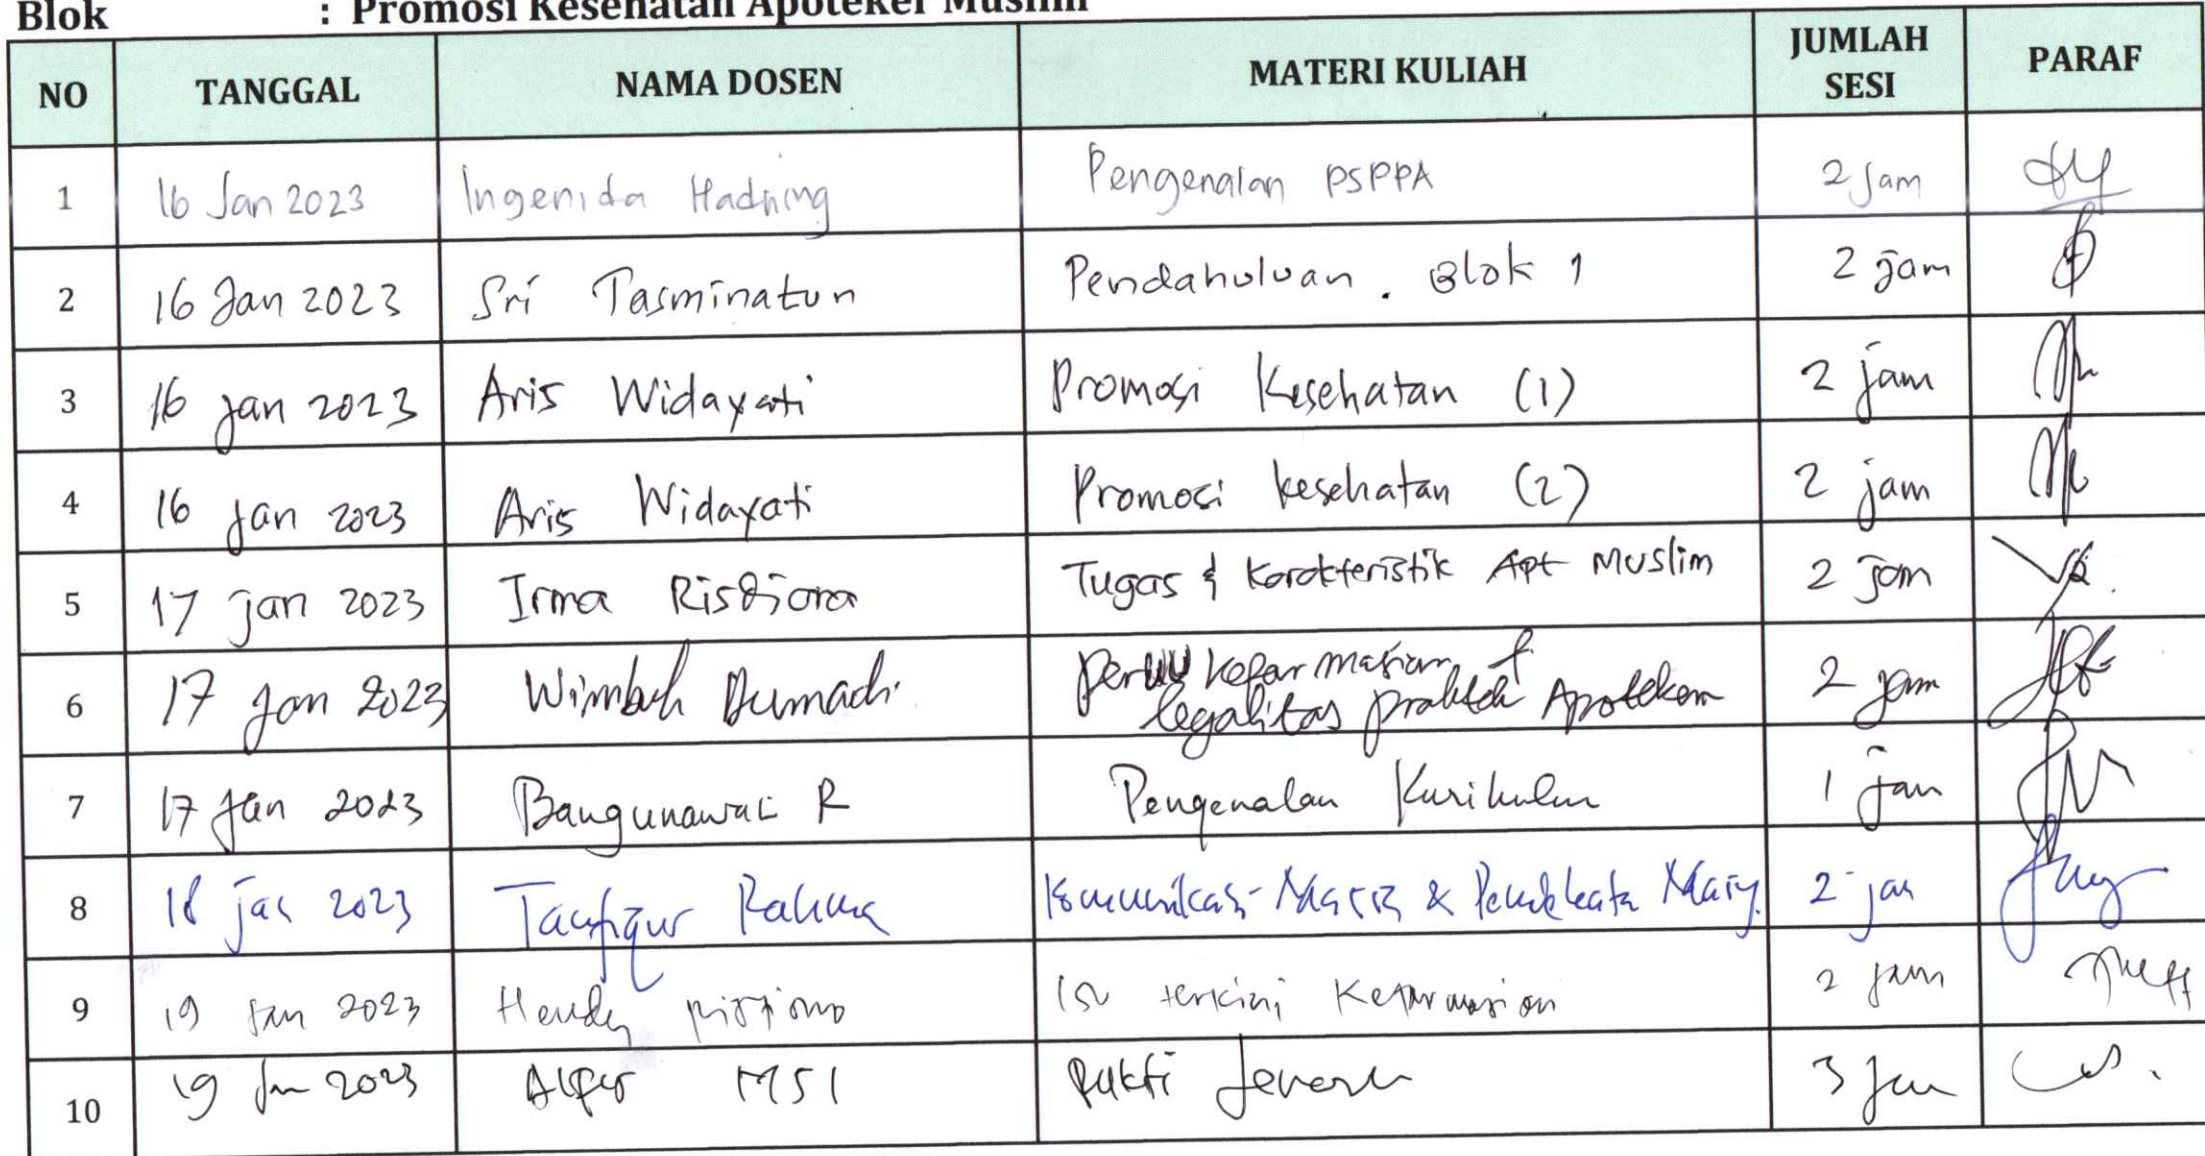 Blok : Promosi Kesehatan Apoteker Muslim
NO TANGGAL NAMA DOSEN MATERI KULIAH JUMLAH SESI PARAF
1 16 Jan 2023 Ingenida Hadning Pengenalan PSPPA 2 Jam
2 16 Jan 2023 Sri Tasminatun Pendahuluan. Blok 1 2 jam
3 16 jan 2023 Aris Widayati Promosi Kesehatan (1) 2 jam
4 16 jan 2023 Aris Widayati Promosi kesehatan (2) 2 jam
5 17 jan 2023 Irma Risdiana Tugas & Karakteristik Apt Muslim 2 jam
6 17 jan 2023 Wimbuh Dumadi kefarmasian
legalitas praktek Apoteker 2 jam
7 17 jan 2023 Bangunawati R Pengenalan Kurikulum 1 jam
8 18 jan 2023 Taufiqur Rahman Komunikasi & 2 jam
9 19 Jan 2023 Hendy Isu terkini Kefarmasian 2 jam
10 19 Jan 2023 MSI Rukti Jenazah 3 Jam